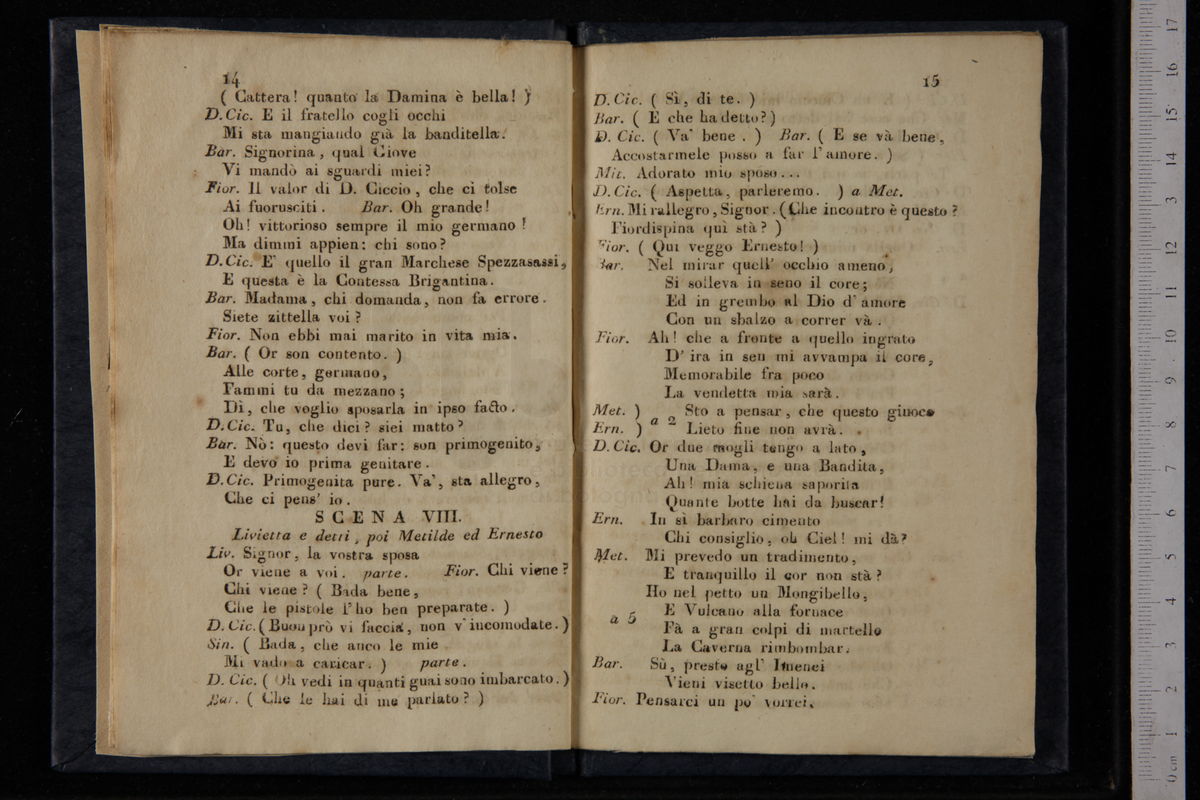 14
( Cattera! quanto la Damina è bella! )
D. Cic. E il fratello cogli occhi
Mi sta mangiando già la banditella.
Bar. Signorina, qual Giove
Vi mandò ai sguardi miei?
Fior. Il valor di D. Ciccio, che ci tolse
Ai fuorusciti. Bar. Oh grande!
Oh! vittorioso sempre il mio germano!
Ma dimmi appien: chi sono?
D. Cic. E' quello il gran Marchese Spezzasassi,
E questa è la Contessa Brigantina.
Bar. Madama, chi domanda, non fa errore.
Siete zittella voi?
Fior. Non ebbi mai marito in vita mia.
Bar. ( Or son contento. )
Alle corte, germano,
Fammi tu da mezzano;
Di, che voglio sposarla in ipso facto.
D. Cic. Tu, che dici? siei matto?
Bar. Nò: questo devi far: son primogenito,
E devo io prima genitare.
D. Cic. Primogenita pure. Va', sta allegro,
Che ci pens' io.
SCENA VIII.
Livietta e detti, poi Metilde ed Ernesto
Liv. Signor, la vostra sposa
Or viene a voi. parte. Fior. Chi viene?
Chi viene? ( Bada bene,
Che le pistole l'ho ben preparate. )
D. Cic. ( Buon prò vi faccia, non v'incomodate. )
Sin. ( Bada, che anco le mie
Mi vado a caricar. ) parte.
D. Cic. ( Oh vedi in quanti guai sono imbarcato. )
Bar. ( Che le hai di me parlato? )
15
D. Cic. ( Sì, di te. )
Bar. ( E che ha detto? )
D. Cic. ( Va' bene. ) Bar. ( E se và bene,
Accostarmele posso a far l'amore. )
Mit. Adorato mio sposo...
D. Cic. ( Aspetta, parleremo. ) a Met.
Ern. Mi rallegro, Signor. ( Che incontro è questo?
Fiordispina quì stà? )
Fior. ( Qui veggo Ernesto! )
Bar. Nel mirar quell' occhio ameno,
Si solleva in seno il core;
Ed in grembo al Dio d'amore
Con un sbalzo a correr và.
Fior. Ah! che a fronte a quello ingrato
D' ira in sen mi avvampa il core,
Memorabile fra poco
La vendetta mia sarà.
Met. ) a 2 Sto a pensar, che questo giuoco
Ern. ) Lieto fine non avrà.
D. Cic. Or due mogli tengo a lato,
Una Dama, e una Bandita,
Ah! mia schiena saporita
Quante botte hai da buscar!
Ern. In sì barbaro cimento
Chi consiglio, oh Ciel! mi dà?
Met. Mi prevedo un tradimento,
E tranquillo il cor non stà?
Ho nel petto un Mongibello,
a 5 E Vulcano alla fornace
Fà a gran colpi di martello
La Caverna rimbombar.
Bar. Sù, presto agl' Imenei
Vieni visetto bello.
Fior. Pensarci un po' vorrei.